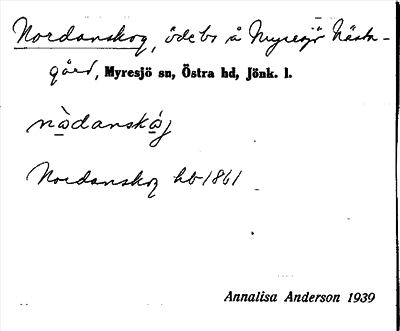 Nordanskog, ödebs å Myresjö Nästa-
gård, Myresjö sn, Östra hd, Jönk. l.
nòdanskáj
Nordanskog hb 1861
Annalisa Anderson 1939